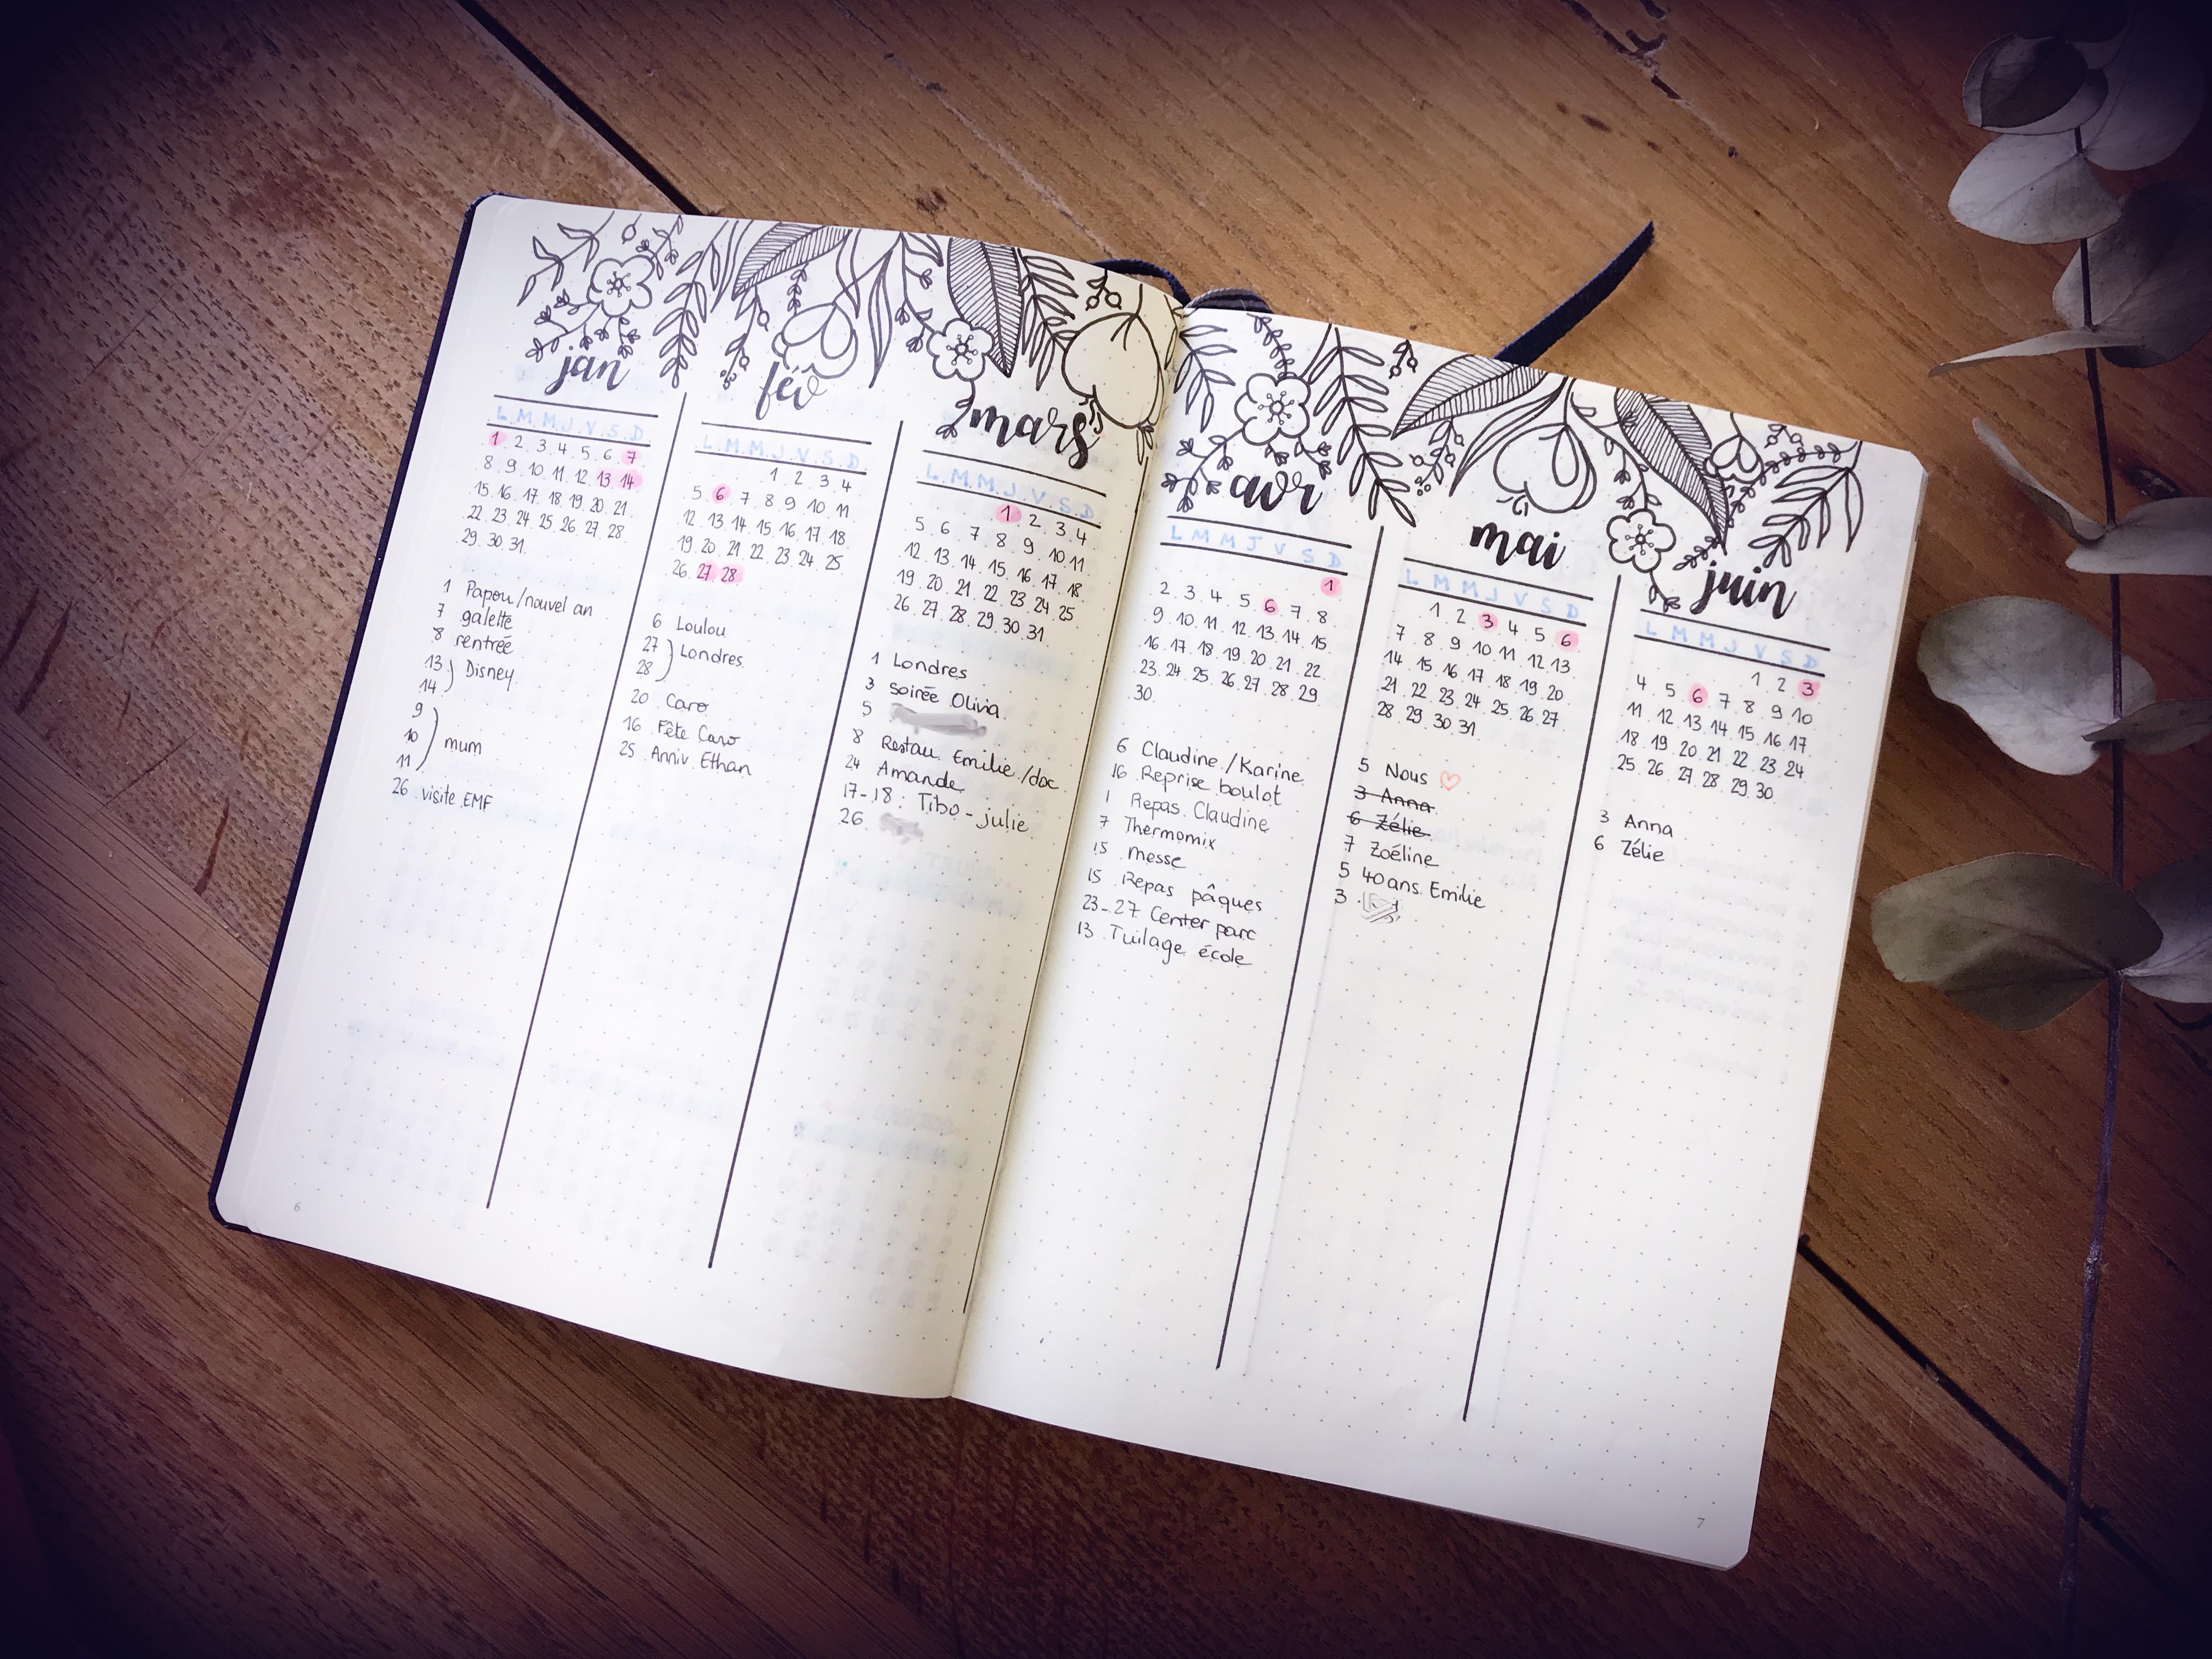 jan
L.M.M.J.V.S.D
1 2.3.4.5.6.7
8.9.10.11.12.13.14
15.16.17.18.19.20.21.
22.23.24.25.26.27.28
29.30.31.
1 Papou/nouvel an
7 galette
8 rentrée
13 ) Disney
14
9
10 ) mum
11
26.visite.EMF
fév
L.M.M.J.V.S.D
1.2.3.4
5.6 7 8.9.10.11
12.13.14.15.16.17.18
19.20.21.22.23.24.25
26.27 28
6 Loulou
27 ) Londres
28
20 Caro
16 Fête Caro
25.Anniv.Ethan
mars
L.M.M.J.V.S.D
1 2.3.4
5 6 7 8.9.10.11
12.13.14.15.16.17.18
19.20.21.22.23.24.25
26.27.28.29.30.31
1 Londres
3 soirée.Olivia
5
8 Restau.Emilie./doc
24 Amande
17-18: Tibo-julie
26.
6
avr
L M M J V S D
1
2.3.4.5.6 7 8
9.10.11.12.13.14.15
16.17.18.19.20.21.22
23.24.25.26.27.28.29
30.
6 Claudine./Karine
16.Reprise boulot
1 Repas.Claudine
7 Thermomix
15 messe
15 Repas pâques
23-27 Center parc
13.Tuilage école
mai
L M M J V S D
1.2 3 4.5 6
7.8.9.10.11.12.13
14.15.16.17.18.19.20
21.22.23.24.25.26.27
28.29.30.31
5 Nous ♡
3 Anna
6 Zélie
7 Zoéline
5 40ans.Emilie
3
juin
L M M J V S D
1.2.3
4.5.6 7.8.9.10
11.12.13.14.15.16.17
18.19.20.21.22.23.24
25.26.27.28.29.30.
3 Anna
6 Zélie
7